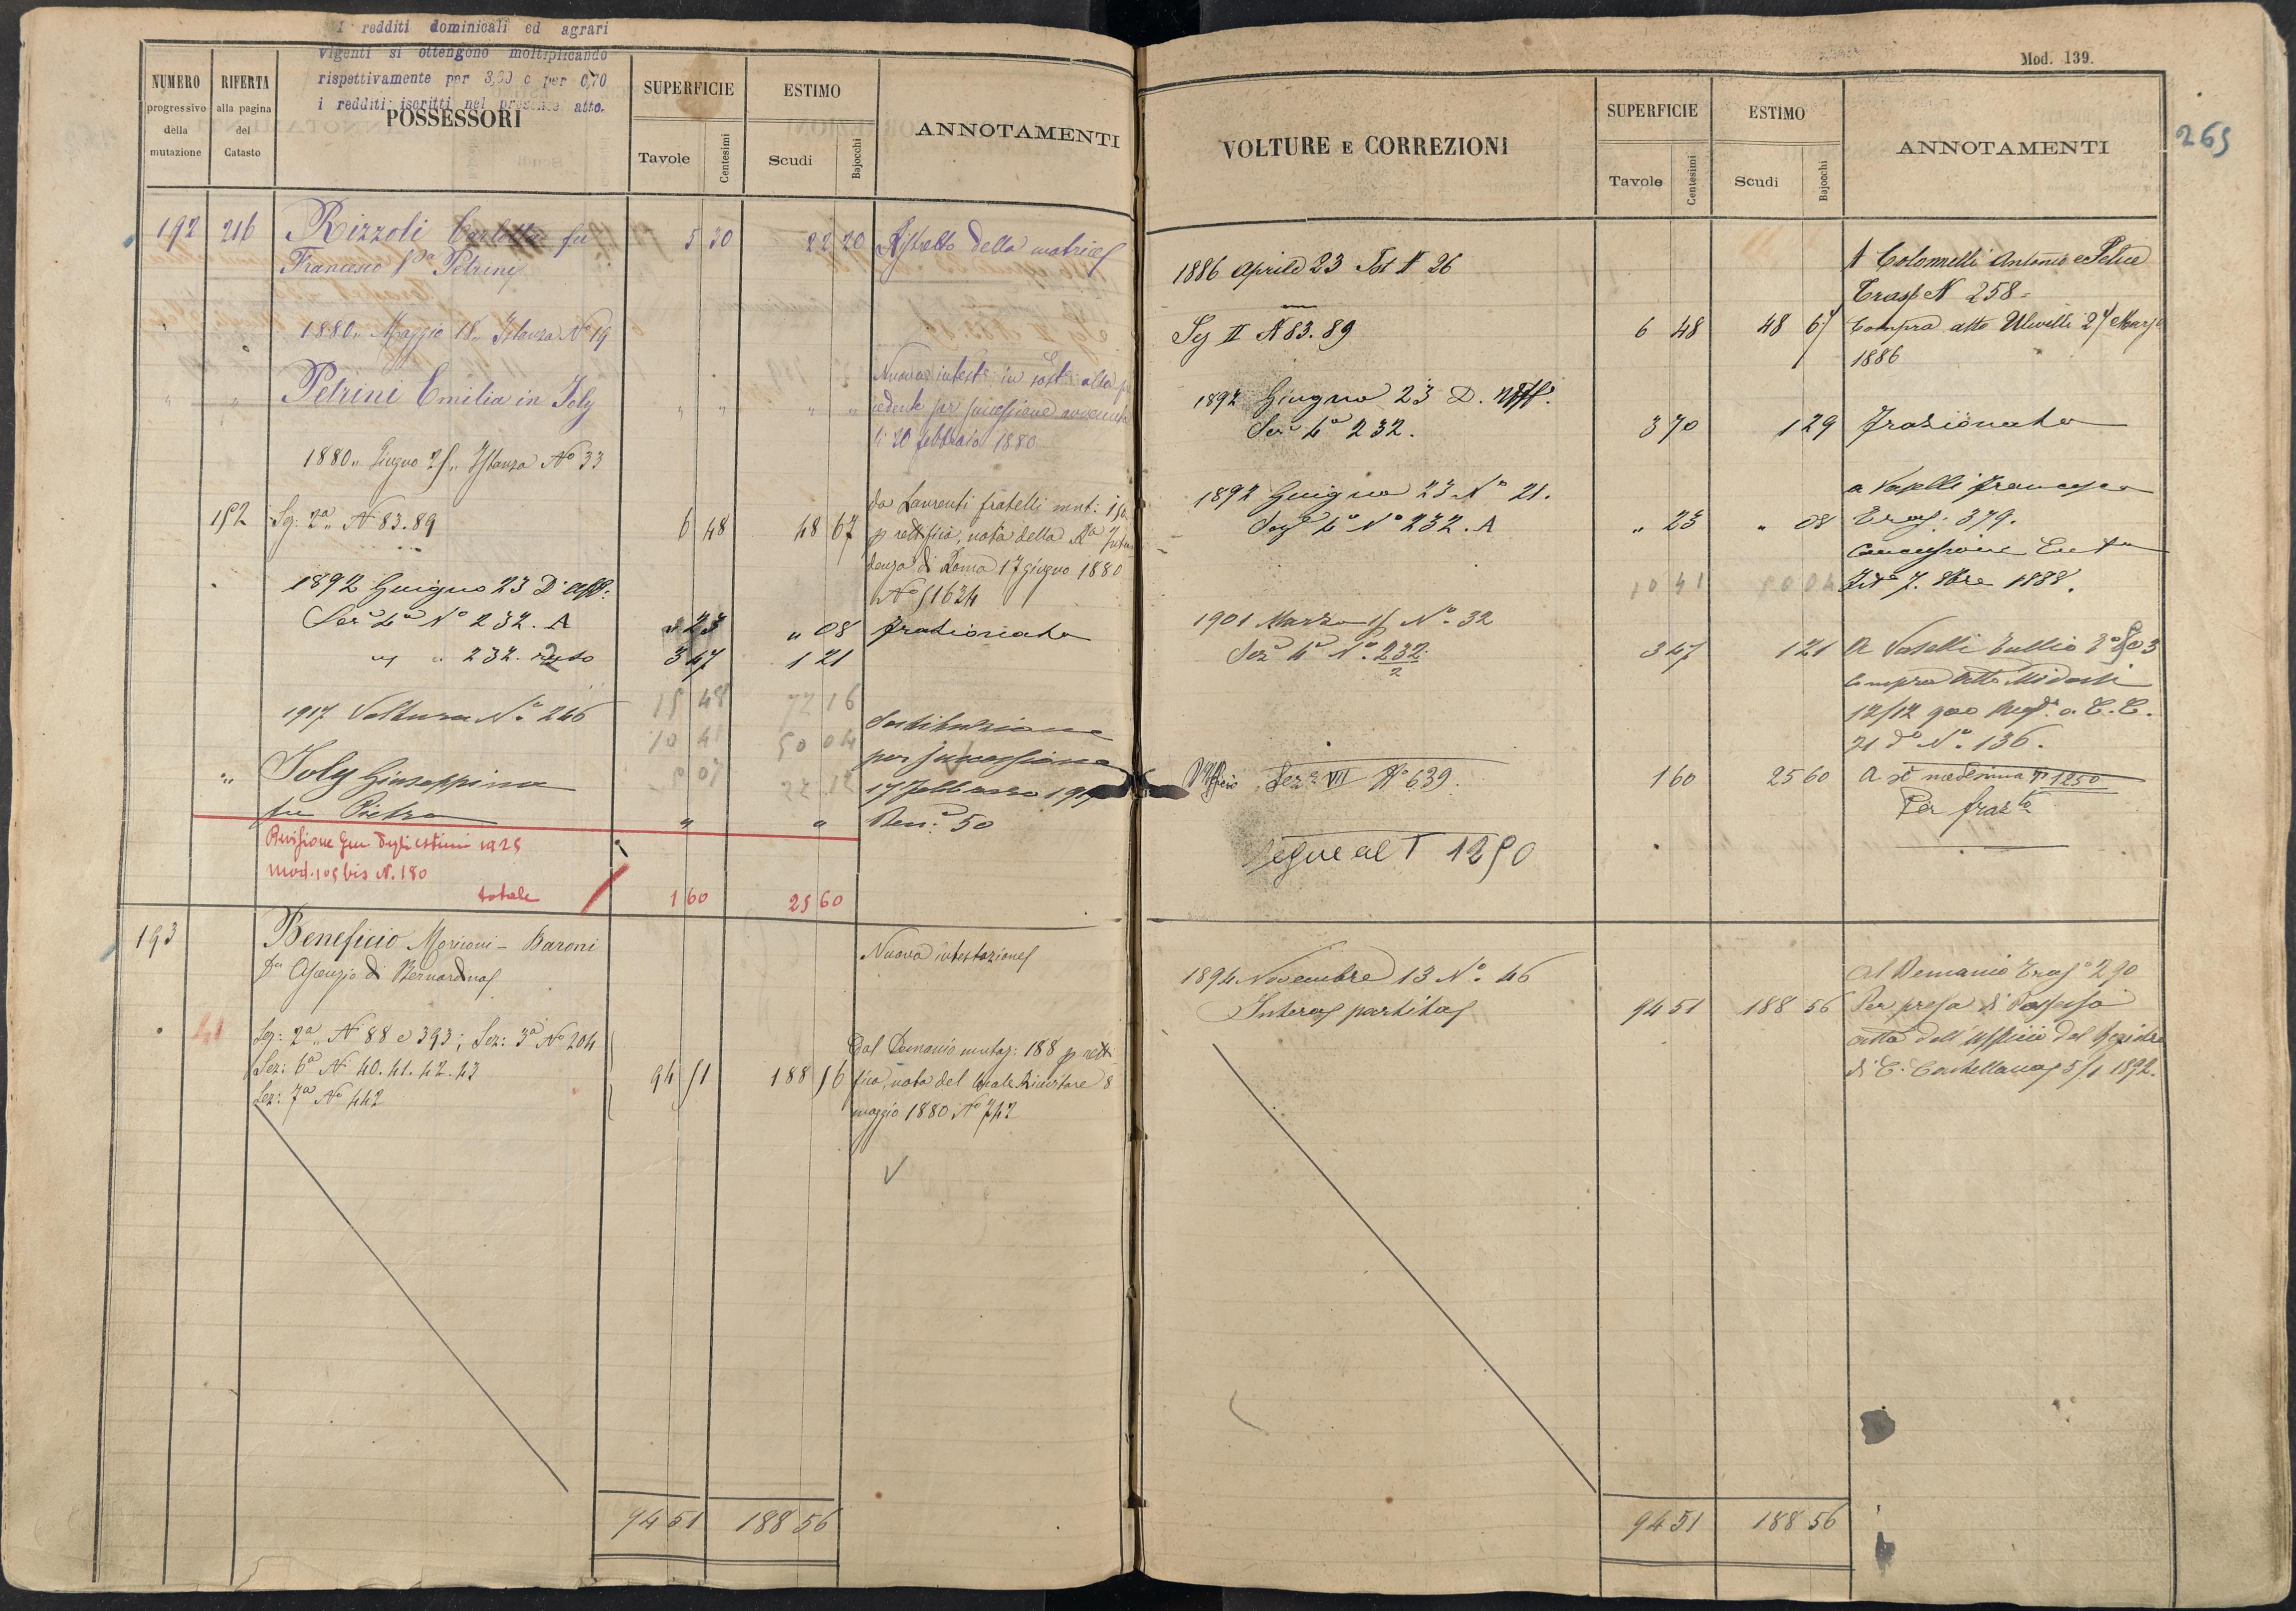 I redditi dominicali ed agrari
vigenti si ottengono moltiplicando
rispettivamente per 3,60 e per 0,70
i redditi iscritti nel presente atto.
NUMERO
progressivo
della
mutazione
RIFERTA
alla pagina
del
Catasto
POSSESSORI
SUPERFICIE
Tavole
Centesimi
ESTIMO
Scudi
Bajocchi
ANNOTAMENTI
192 216 Rizzoli Carlotta fu 5 30 22 20 Ristretto della matrice
Francesco Petrini
1880 Maggio 18 Istanza No 19
Petrini Emilia in Joly " " " "
Nuova intest. in sost. alla
cedente per successione avvenuta
li 20 febbraio 1880
1880 Giugno 25 Istanza No 33
152 Sez: 2a N 83.89 6 48 48 67
da Laurenti fratelli mut:
p rettifica, nota della
denza di Roma 17 giugno 1880
No 51624
1892 Giugno 23 D'uff:
Sez 4a No 232. A " 23 " 08 frazionato
" " 232. resto 3 47 1 21
15 48 72 16
1917 Voltura No 246
10 41 50 04
5 07 22 12
Sostituzione
per successione
17 Febbraio
Den. 50
" Joly Giuseppina
fu Pietro " "
Revisione Gen degli estimi 1925
mod. 105 bis N. 180
totale 1 60 25 60
193 Beneficio Moricioni - Baroni
in Ascenzio di Bernardino
Nuova intestazione
Sez: 2a N 88 e 393; Sez: 3a No 204
Sez: 6a N 40.41.42.43
Sez: 7a No 442
94 51 188 56
Dal Demanio mutaz: 188 p retti
fica, nota del locale Ricevitore 8
maggio 1880 No 742
94 51 188 56
Mod. 139.
265
VOLTURE E CORREZIONI
SUPERFICIE
Tavole
Centesimi
ESTIMO
Scudi
Bajocchi
ANNOTAMENTI
1886 Aprile 23 Ist N 26
A Colonnelli Antonio e Felice
Trasp N 258
Sez II N 83.89 6 48 48 67
Compra atto Ulivelli 24 Marzo
1886
1892 Giugno 23 D. Uff.
Sez 4a 232. 3 70 1 29 frazionato
1892 Giugno 23 No 21.
Sez 4a No 232. A " 23 " 08
a Vaselli Francesco
Trasp: 379.
Concessione
7. 8bre 1888.
10 41 50 04
1901 Marzo 15 No. 32
Sez 4a No. 232/2 3 47 1 21
A Vaselli Tullio
Compra Atto
12/12 900 Reg. a C. C.
21 do No. 136.
D'Ufficio Sez. VII No 639. 1 60 25 60
A sè medesima T 1250
Per fraz.to
Segue al T 1250
1894 Novembre 13 No. 46
Intera partita 94 51 188 56
Al Demanio Trasp 290
Per presa di Possesso
atto dell'Ufficio del Registro
di C. Castellana 5/1 1892.
94 51 188 56